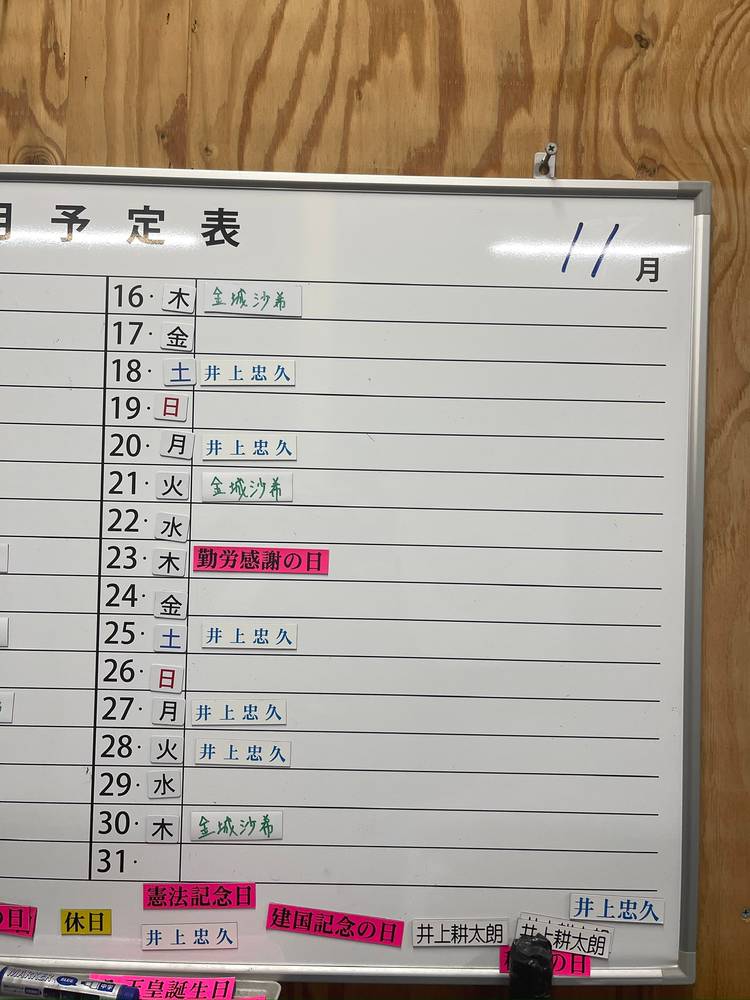 予定表
11月
16・木 金城沙希
17・金
18・土 井上忠久
19・日
20・月 井上忠久
21・火 金城沙希
22・水
23・木 勤労感謝の日
24・金
25・土 井上忠久
26・日
27・月 井上忠久
28・火 井上忠久
29・水
30・木 金城沙希
31・
憲法記念日
の日
休日
井上忠久
建国記念の日
井上耕太朗
井上耕太朗
井上忠久
の日
天皇誕生日